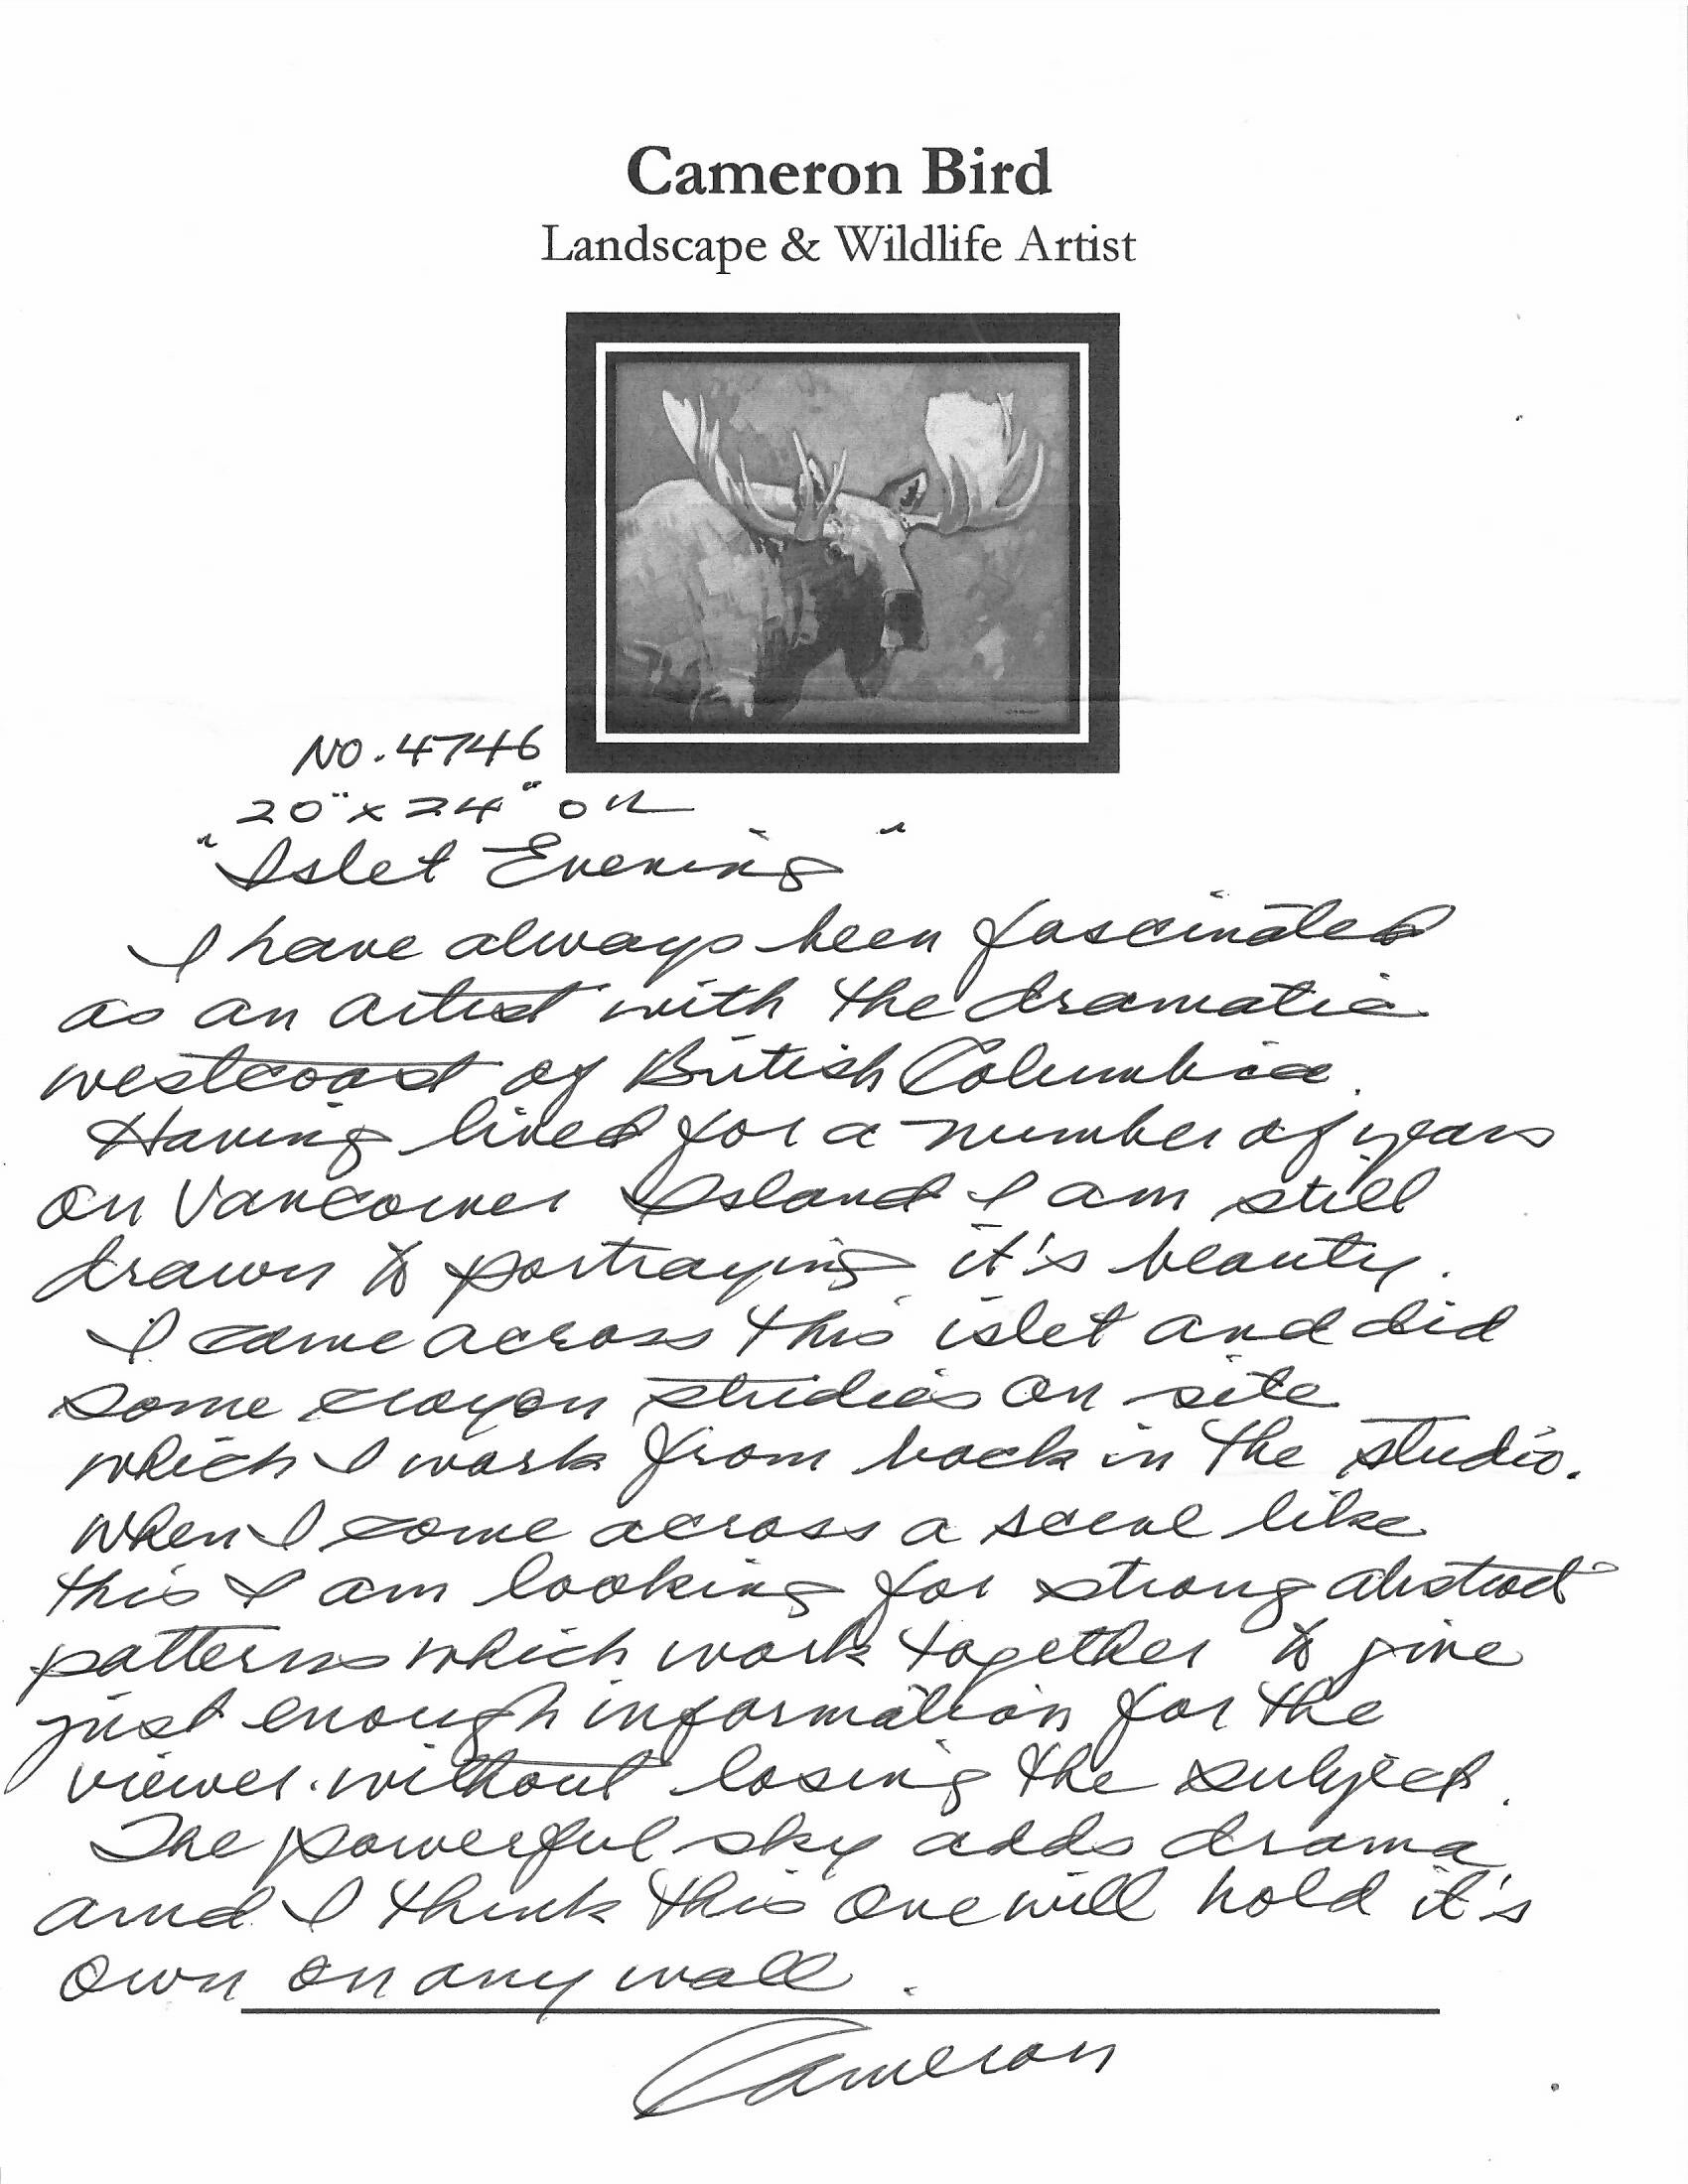 Cameron Bird
Landscape & Wildlife Artist
NO. 4746
20" x 24" oil
"Islet Evening"
I have always been fascinated
as an artist with the dramatic
westcoast of British Columbia.
Having lived for a number of years
on Vancouver Island I am still
drawn to portraying it's beauty.
I came across this islet and did
some crayon studies on site
which I work from back in the studio.
When I come across a scene like
this I am looking for strong abstract
patterns which work together to give
just enough information for the
viewer without losing the subject.
The powerful sky adds drama
and I think this one will hold it's
own on any wall.
Cameron